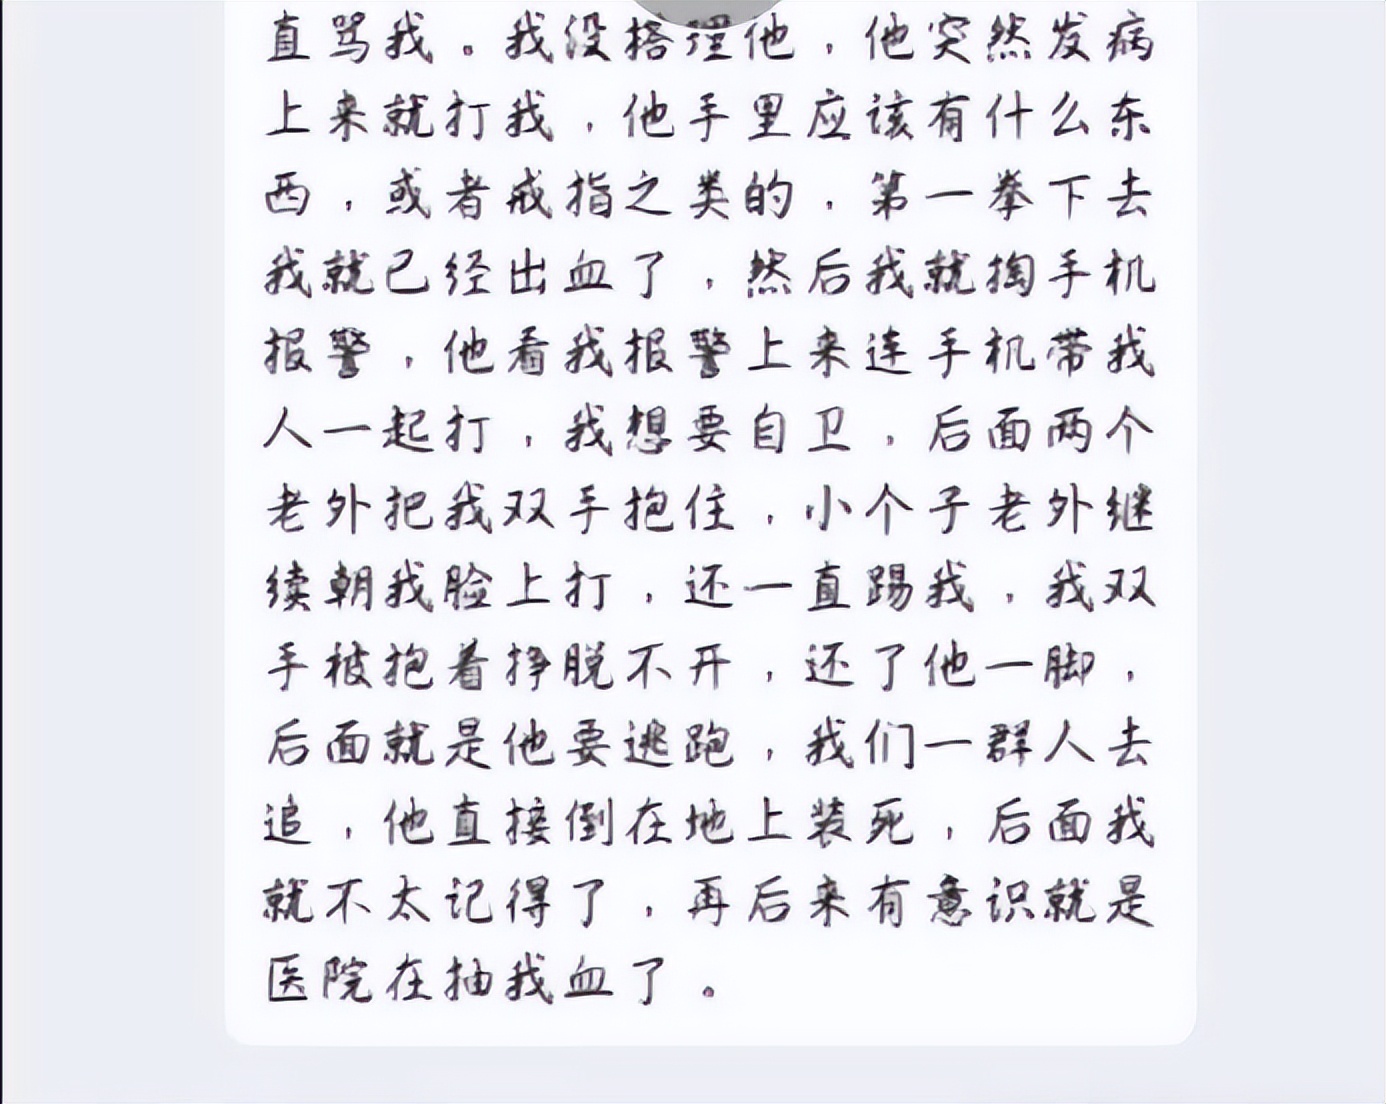 直骂我。我没搭理他，他突然发病
上来就打我，他手里应该有什么东
西，或者戒指之类的，第一拳下去
我就已经出血了，然后我就掏手机
报警，他看我报警上来连手机带我
人一起打，我想要自卫，后面两个
老外把我双手抱住，小个子老外继
续朝我脸上打，还一直踢我，我双
手被抱着挣脱不开，还了他一脚，
后面就是他要逃跑，我们一群人去
追，他直接倒在地上装死，后面我
就不太记得了，再后来有意识就是
医院在抽我血了。